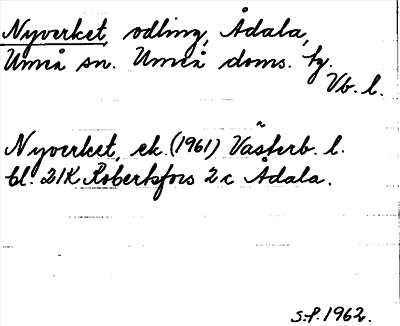 Nyverket, odling, Ådala,
Umeå sn. Umeå doms. tg.
Vb. l.
Nyverket, ek. (1961) Västerb. l.
bl. 21K Robertsfors 2c Ådala.
S.f. 1962.